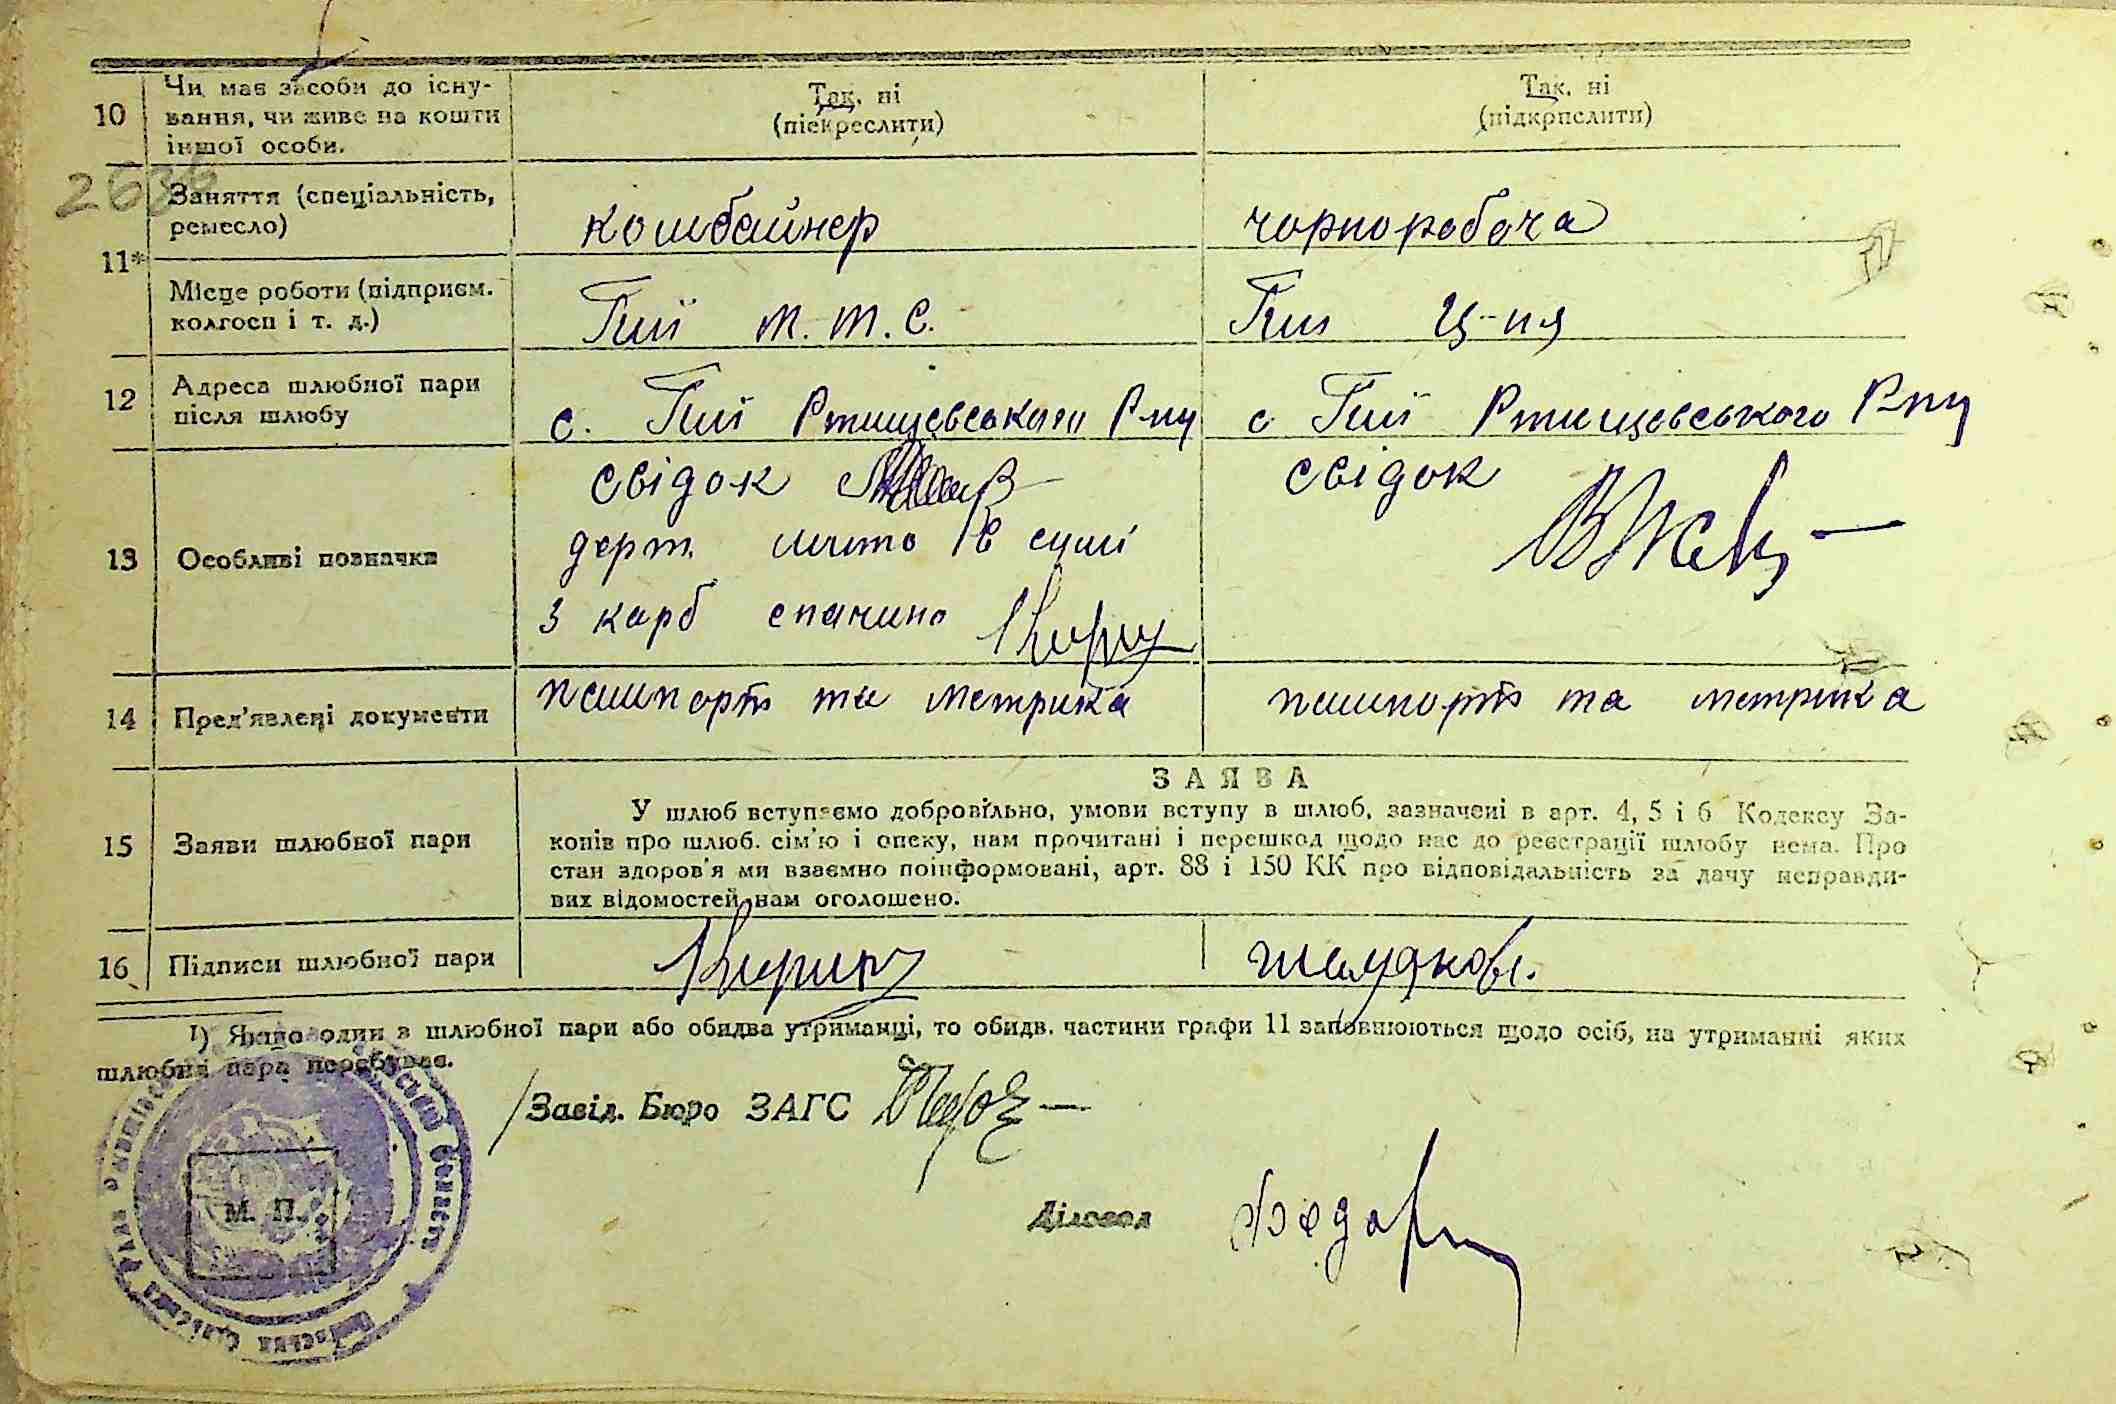 10 Чи має засоби до існу-
вання, чи живе на кошти
іншої особи.
Так, ні
(піекреслити)
Так, ні
(підкрпслити)
2636
11* Заняття (спеціальність,
ремесло)
комбайнер
чорноробоча
Місце роботи (підприєм.
колгосп і т. д.)
Гнії М.Т.С.
Гнії
12 Адреса шлюбної пари
після шлюбу
с. Гнії Ртищевського Р-ну
с Гнії Ртищевського Р-ну
13 Особливі позначки
свідок
держ. мито в сумі
3 карб сплачино
свідок
14 Пред'явлені документи
пашпорт та метрика
пашпорт та метрика
15 Заяви шлюбної пари
ЗАЯВА
У шлюб вступаємо добровільно, умови вступу в шлюб, зазначені в арт. 4, 5 і 6 Кодексу За-
конів про шлюб. сім'ю і опеку, нам прочитані і перешкод щодо нас до реєстрації шлюбу нема. Про
стан здоров'я ми взаємно поінформовані, арт. 88 і 150 КК про відповідальність за дачу неправди-
вих відомостей нам оголошено.
16 Підписи шлюбної пари
1) Якщо один з шлюбної пари або обидва утриманці, то обидв. частини графи 11 заповнюються щодо осіб, на утриманні яких
шлюбна пара перебуває.
Завід. Бюро ЗАГС
М. П.
Діловод